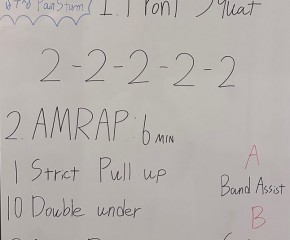 1. Front Squat
2-2-2-2-2
2. AMRAP: 6 MIN
1 Strict Pull up
10 Double under
A
Band Assist
B